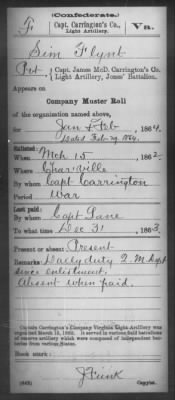 (Confederate.)
F Capt. Carrington's Co., Va.
Light Artillery.
Sim Flynt
Pvt, Capt. James McD. Carrington's Co.
Light Artillery, Jones' Battalion.
Appears on
Company Muster Roll
of the organization named above,
for Jan & Feb, 1864.
Dated Feb 29, 1864.
Enlisted:
When Mch 15, 1862.
Where Char'ville
By whom Capt Carrington
Period War
Last paid:
By whom Capt Lane
To what time Dec 31, 1863.
Present or absent Present
Remarks: Daily duty Q. M. Dept
since enlistment.
Absent when paid.
Captain Carrington's Company Virginia Light Artillery was
Book mark:
(642) Copyist.